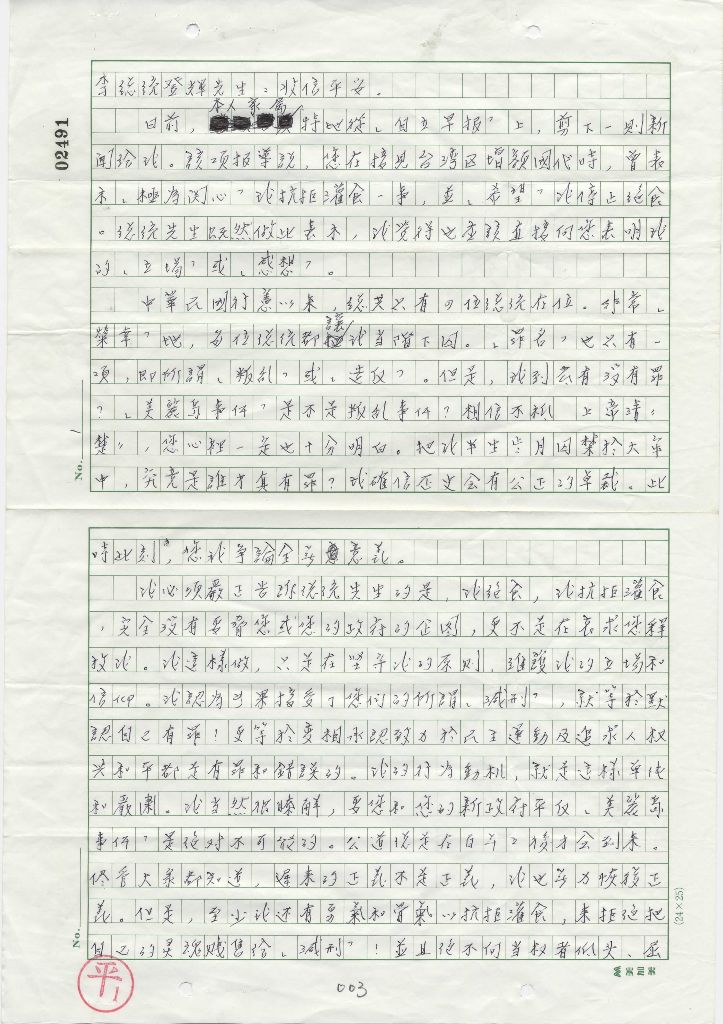 02491
李總統登輝先生：收信平安。
本人家屬
日前，特地從「自立早報」上，剪下一則新
聞給我。該項報導說，您在接見台灣區增額國代時，曾表
示「極為関心」我抗拒灌食一事，並「希望」我停止絕食
。總統先生既然做此表示，我覺得也查須直接向您表明我
的「立場」或「感想」。
中華民國行憲以來，總共只有四位總統在位。非常「
榮幸」地，每位總統都讓我当階下囚。「罪名」也只有一
項，即所謂「叛乱」或「造反」。但是，我到底有沒有罪
？「美麗島事件」是不是叛乱事件？相信不祇「上帝清
楚」，您心裡一定也十分明白。把我半生歲月囚禁於大牢
中，究竟是誰才真有罪？我確信歷史会有公正的卓裁。此
No. 1
時此刻，您我爭論全無意義。
我必須嚴正告訴總統先生的是，我絕食，我抗拒灌食
，完全沒有要脅您或您的政府的企圖，更不是在哀求您釋
放我。我這樣做，只是在堅守我的原則，維護我的立場和
信仰。我認為如果接受了您們的所謂「減刑」，就等於默
認自己有罪！更等於變相承認致力於民主運動及追求人权
與和平都是有罪和錯誤的。我的行為動机，就是這樣單純
和嚴肅。我当然很瞭解，要您和您的新政府平反「美麗島
事件」是絕對不可能的。公道總是在白年之後才会到來。
儘管大家都知道，遲來的正義不是正義，我也無力恢復正
義。但是，至少我還有勇氣和骨氣以抗拒灌食，來拒絕把
自己的灵魂贱售給「減刑」！並且絕不向当权者低头、屈
No.
(24×25)
平1
003